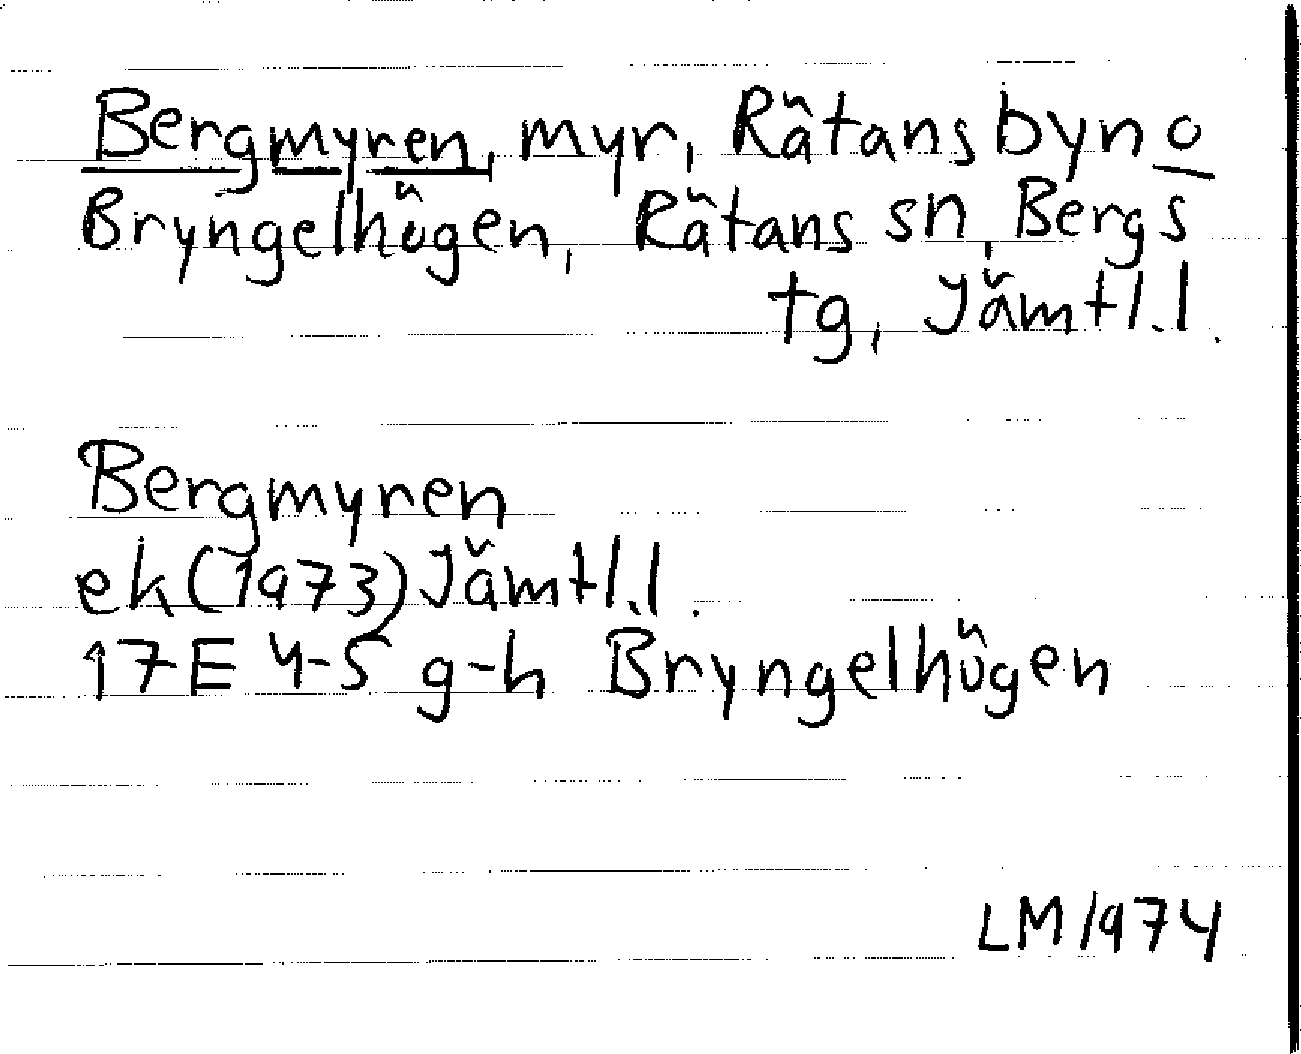 Bergmyren, myr, Rätansbyn o
Bryngelhögen, Rätans sn, Bergs
tg, Jämtl.l.
Bergmyren
ek (1973) Jämtl.l.
17E 4-5 g-h Bryngelhögen
LM 1974